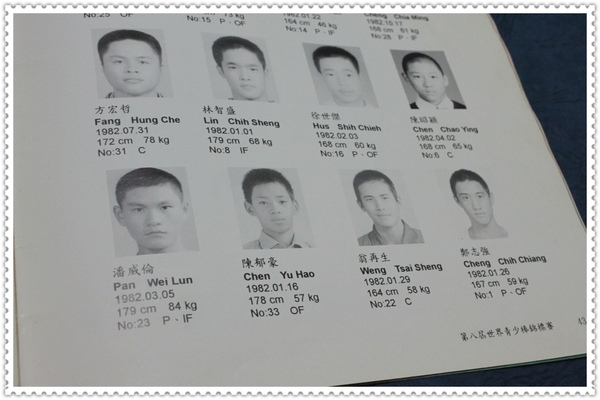 No:25 OF
73 kg
No:15 P · OF
1982.01.22
164 cm 46 kg
No:14 P · IF
Cheng Chia Ming
1982.10.17
168 cm 61 kg
No:28 P · IF
方宏哲
Fang Hung Che
1982.07.31
172 cm 78 kg
No:31 C
林智盛
Lin Chih Sheng
1982.01.01
179 cm 68 kg
No:8 IF
徐世傑
Hus Shih Chieh
1982.02.03
168 cm 60 kg
No:16 P · OF
陳昭穎
Chen Chao Ying
1982.04.02
168 cm 65 kg
No:6 C
潘威倫
Pan Wei Lun
1982.03.05
179 cm 84 kg
No:23 P · IF
陳郁豪
Chen Yu Hao
1982.01.16
178 cm 57 kg
No:33 OF
翁再生
Weng Tsai Sheng
1982.01.29
164 cm 58 kg
No:22 C
鄭志強
Cheng Chih Chiang
1982.01.26
167 cm 59 kg
No:1 P · OF
第八屆世界青少棒錦標賽
43